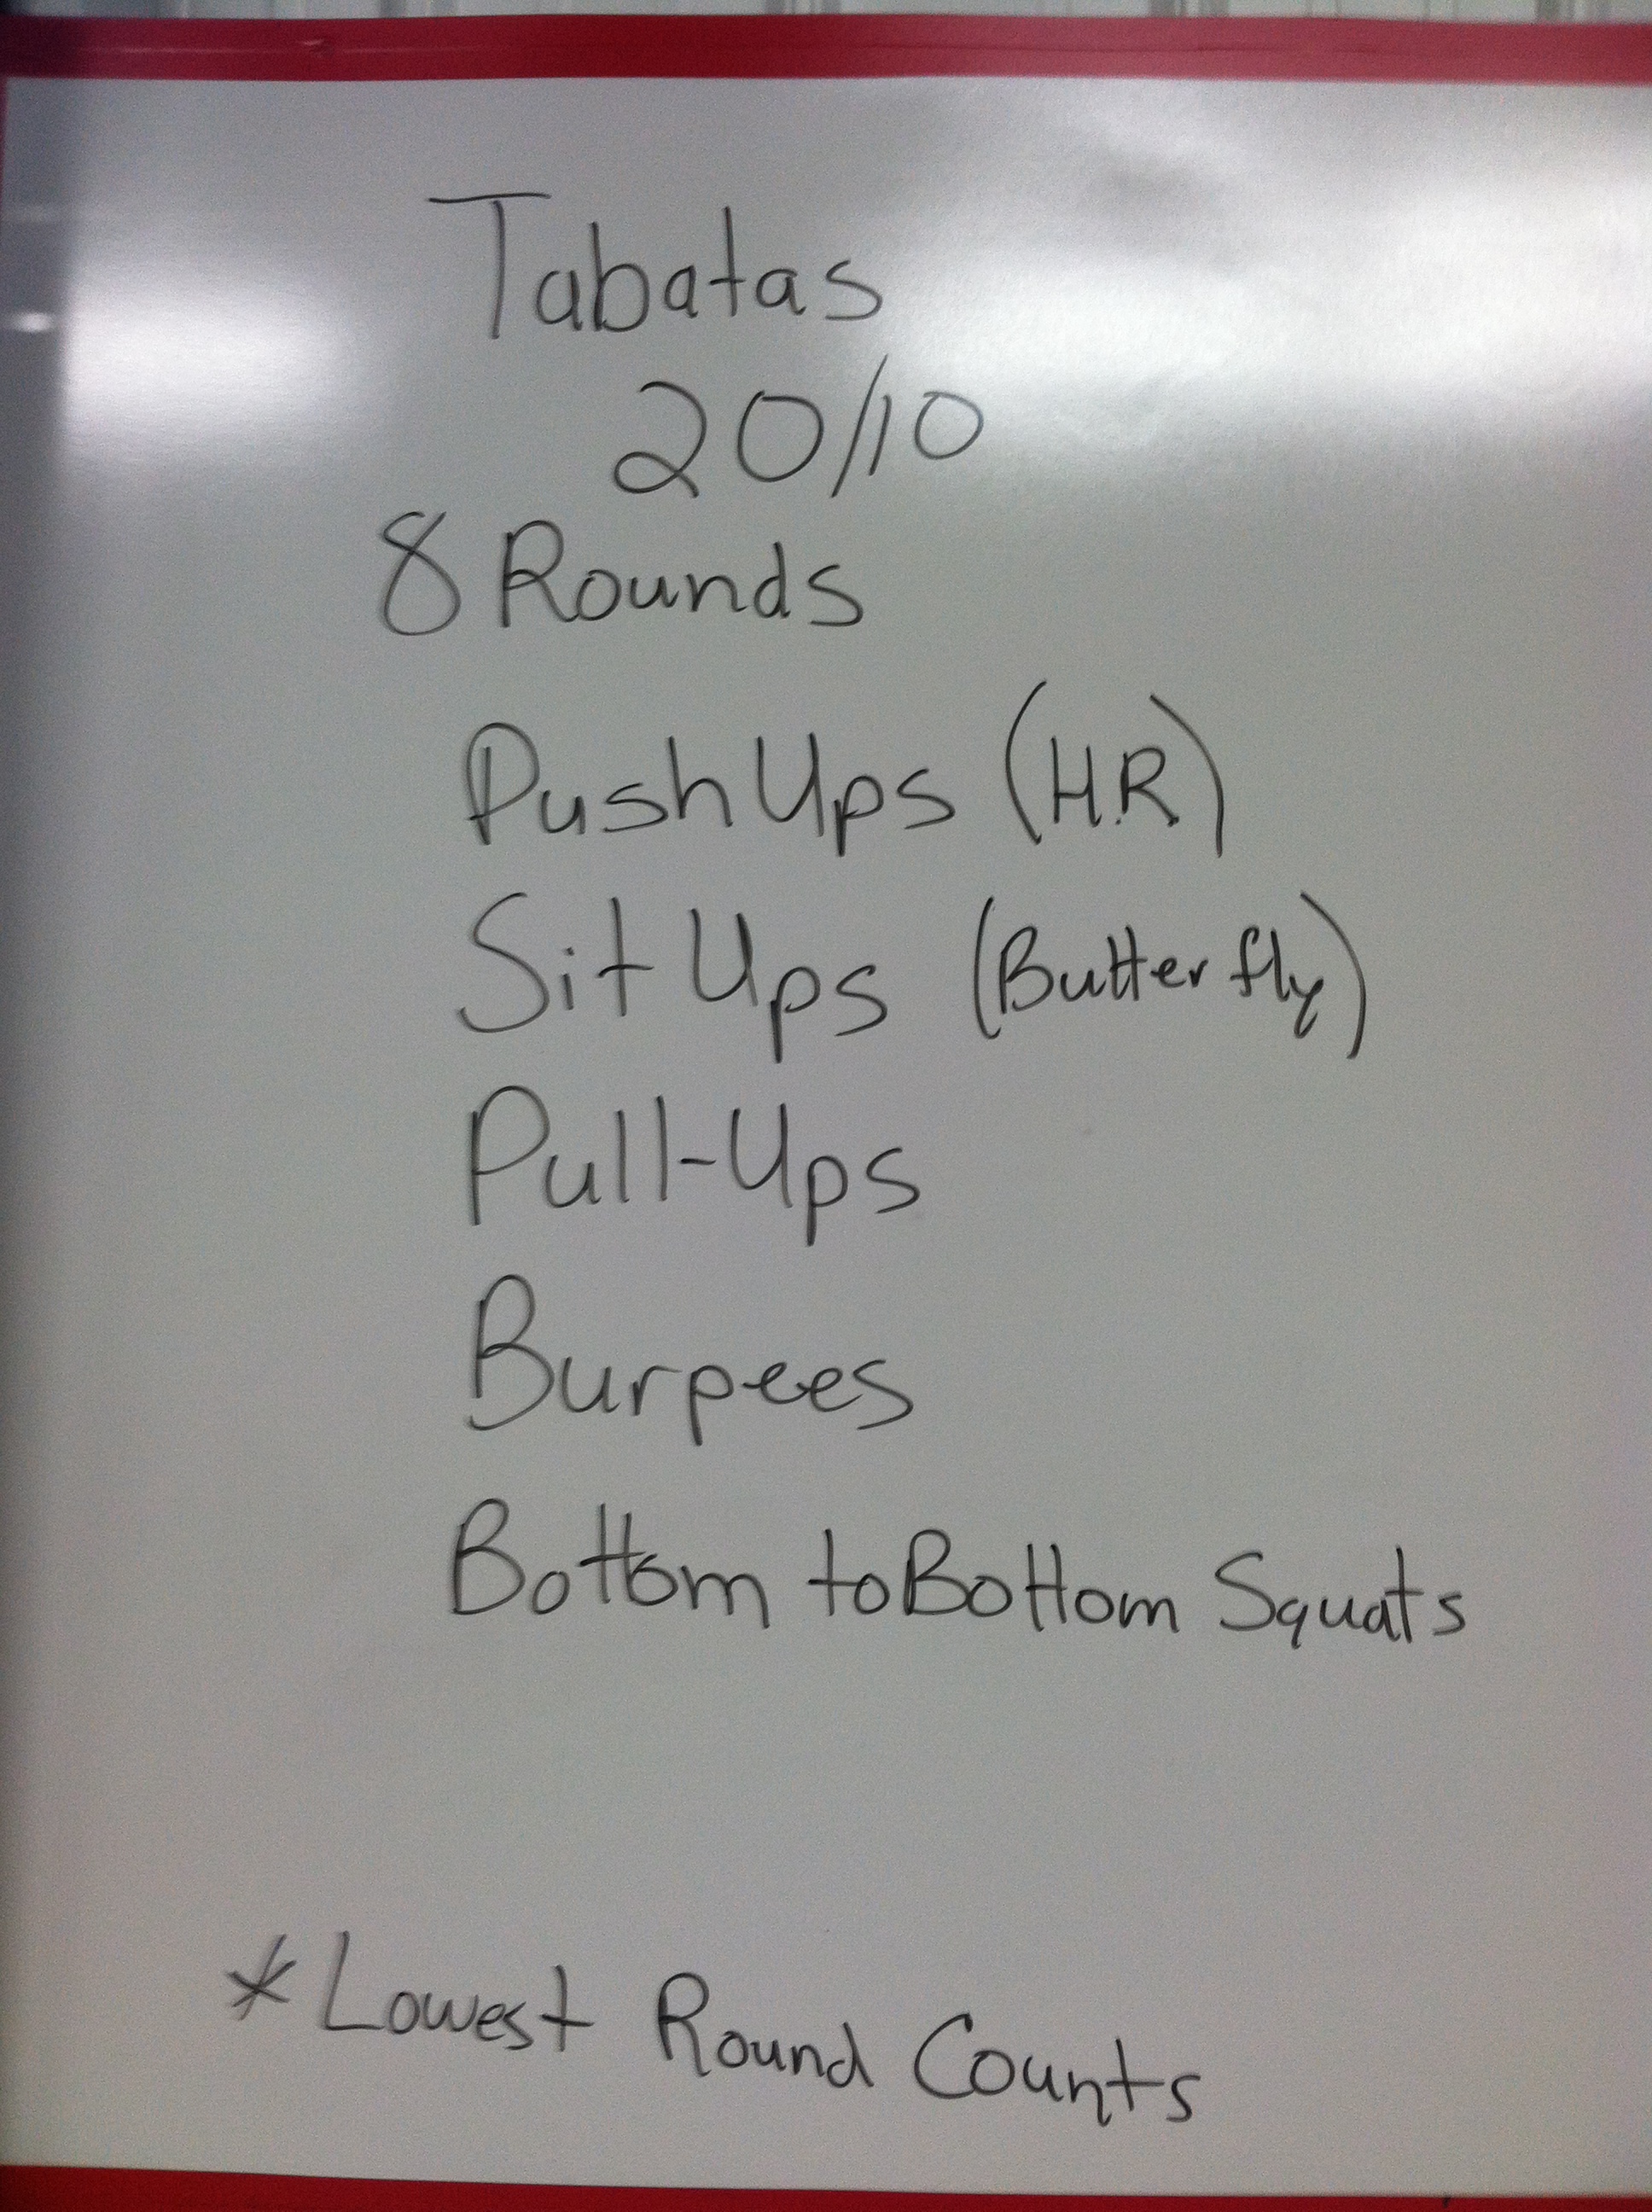 Tabatas
20/10
8 Rounds
Push Ups (H.R)
Sit Ups (Butterfly)
Pull-Ups
Burpees
Bottom to Bottom Squats
*Lowest Round Counts